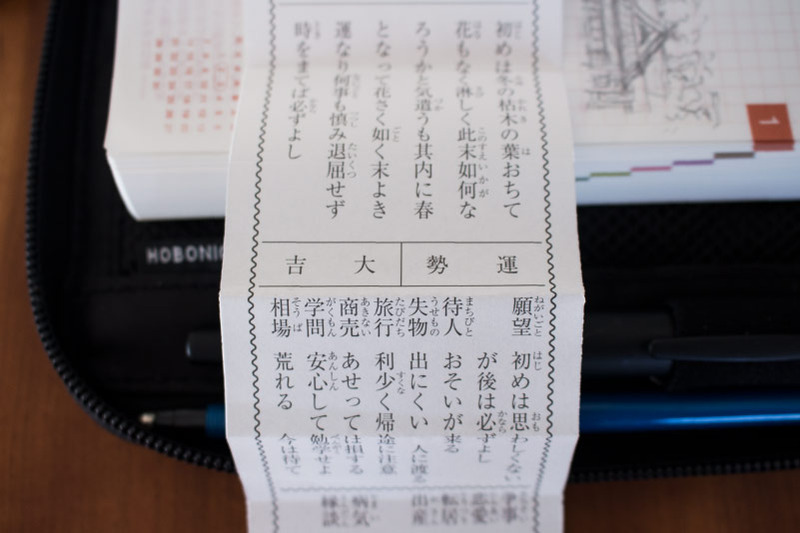 初めは冬の枯木の葉おちて
花もなく淋しく此末如何な
ろうかと気遣うも其内に春
となって花さく如く末よき
運なり何事も慎み退屈せず
時をまてば必ずよし
運勢 大吉
願望 初めは思わしくない
が後は必ずよし
待人 おそいが来る
失物 出にくい 人に渡る
旅行 利少く帰途に注意
商売 あせっては損する
学問 安心して勉学せよ
相場 荒れる 今は待て
争事
恋愛
転居
出産
病気
縁談
HOBONIC
1